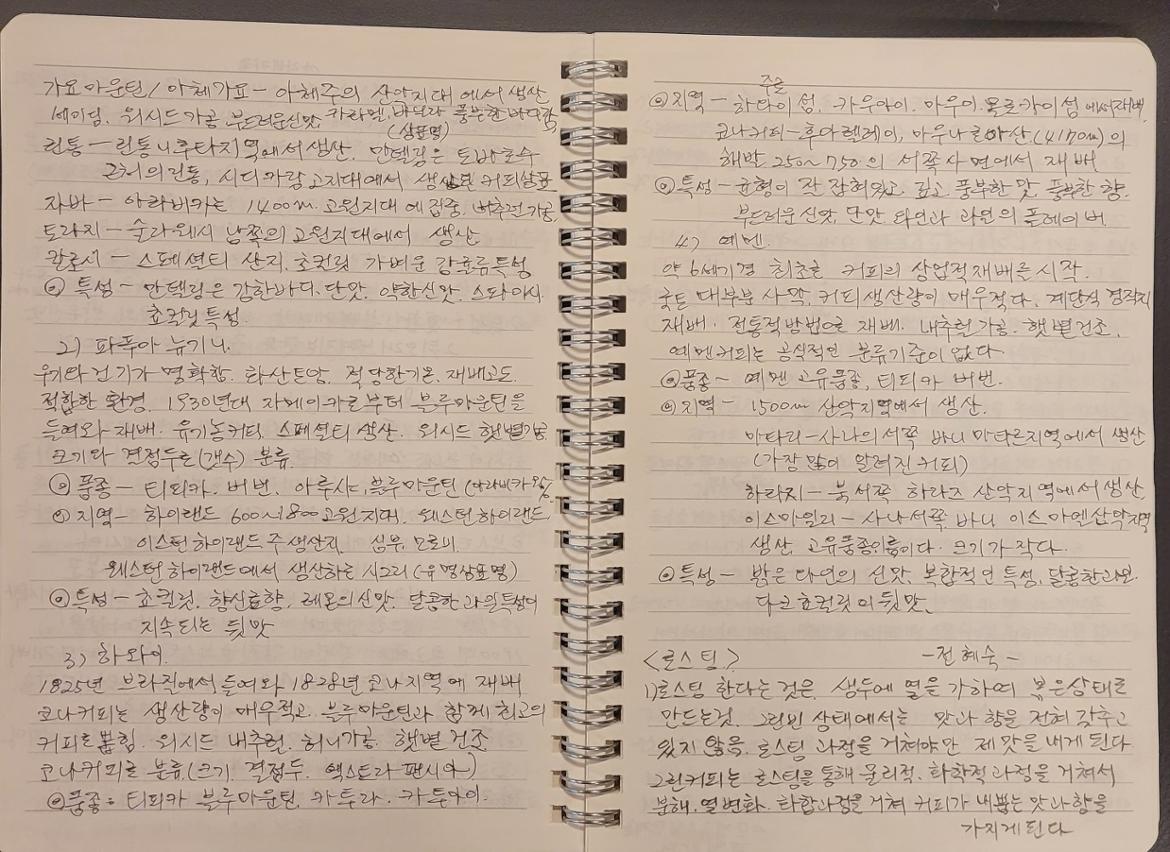 가요마운틴/아체가요 - 아체주의 산악지대에서 생산
세미덤, 워시드가공 부드러운신맛, 카라멜, 바닐라 풍부한 바디감
(상표명)
린통 - 린통니후타지역에서 생산. 만델링은 토바호수
근처의 린통, 시디카랑고지대에서 생산된 커피상표
자바 - 아라비카는 1400m 고원지대에 집중, 내추럴가공
토라자 - 술라웨시 남쪽의 고원지대에서 생산
칼로시 - 스페셜티 산지. 초컬릿 가벼운 감귤류특성
◎ 특성 - 만델링은 강한바디. 단맛. 약한신맛. 스모키
초콜릿특성.
2) 파푸아 뉴기니.
우기와 건기가 명확함. 화산토양. 적당한기온. 재배고도.
적합한 환경. 1930년대 자메이카로부터 블루마운틴을
들여와 재배. 유기농커피. 스페셜티 생산. 워시드 햇볕가공
크기와 결점두로(갯수) 분류.
◎ 품종 - 티피카. 버번. 아루샤. 블루마운틴 (아라비카
◎ 지역 - 하이랜드 600~1800 고원지대. 웨스턴하이랜드.
이스턴하이랜드 주생산지. 심부. 모로비.
웨스턴하이랜드에서 생산하는 시그리(유명상표명)
◎ 특성 - 초컬릿. 향신료향. 레몬의신맛. 달콤한 과일특성이
지속되는 뒷맛
3) 하와이.
1825년 브라질에서 들여와 1828년 코나지역에 재배
코나커피는 생산량이 매우적고. 블루마운틴과 함께 최고의
커피로 뽑힘. 워시드 내추럴. 허니가공. 햇볕 건조
코나커피로 분류(크기. 결점두. 엑스트라 팬시)
◎ 품종 : 티피카 블루마운틴. 카투라. 카투아이.
주술
◎ 지역 - 하와이섬. 카우아이. 마우이. 몰로카이섬에서재배
코나커피 - 후아랄레이, 마우나로아산(4170m)의
해발 250~750의 서쪽사면에서 재배
◎ 특성 - 균형이 잘 잡혀있고. 깊고 풍부한 맛. 풍부한 향.
부드러운 신맛. 단맛 와인과 과일의 플레이버.
4) 예멘.
약 6세기경 최초로 커피의 상업적재배를 시작.
국토 대부분 사막. 커피생산량이 매우적다. 계단식 경작지
재배. 전통적방법으로 재배. 내추럴가공. 햇볕건조.
예멘커피는 공식적인 분류기준이 없다.
◎ 품종 - 예멘 고유품종, 티피카 버번.
◎ 지역 - 1500m 산악지역에서 생산.
마타리 - 사나의서쪽 바니 마타르지역에서 생산
(가장 많이 알려진 커피)
하라지 - 북서쪽 하라즈 산악지역에서생산
이스마일리 - 사나서쪽 바니 이스마엘산악지역
생산. 고유품종이름이다. 크기가작다.
◎ 특성 - 밝은 와인의 신맛. 복합적인 특성. 달콤한과일.
다크초컬릿의 뒷맛.
<로스팅> - 전혜숙 -
1)로스팅 한다는 것은. 생두에 열을 가하여 볶은상태로
만드는것. 그린빈 상태에서는 맛과 향을 전혀 갖추고
있지 않음. 로스팅 과정을 거쳐야만 제 맛을 내게 된다
그린커피는 로스팅을 통해 물리적, 화학적과정을 거쳐서
분해. 열변화. 화합과정을거쳐 커피가 내뿜는 맛과향을
가지게된다